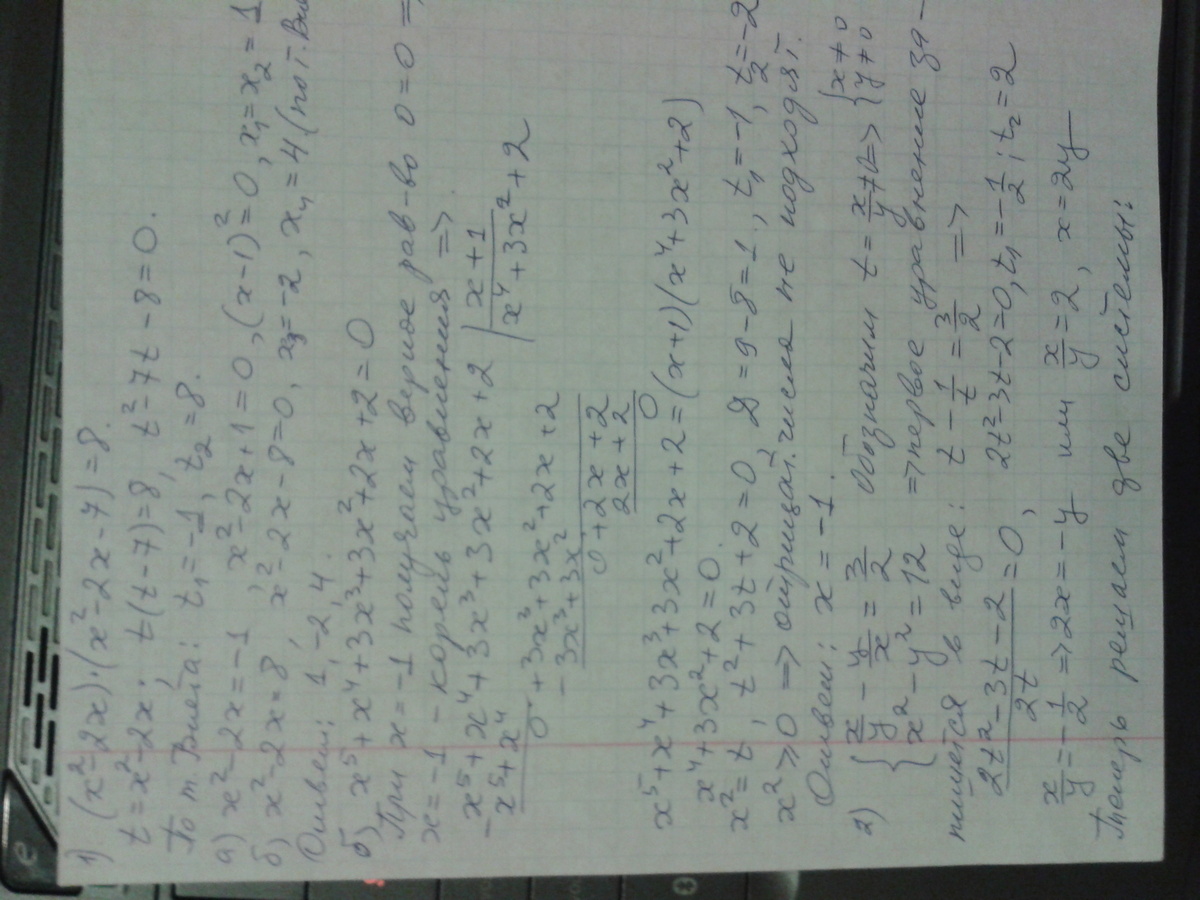 1) (x²-2x)·(x²-2x-7)=8.
t=x²-2x; t(t-7)=8, t²-7t-8=0.
По т. Виета: t₁=-1, t₂=8.
а) x²-2x=-1, x²-2x+1=0, (x-1)²=0, x₁=x₂=1
б) x²-2x=8, x²-2x-8=0, x₃=-2, x₄=4 (по т. Ви
Ответ: 1, -2, 4.
б) x⁵+x⁴+3x³+3x²+2x+2=0
При x=-1 получаем верное рав-во 0=0 =
x=-1 - корень уравнения =>
-x⁵+x⁴+3x³+3x²+2x+2 | x+1
x⁵+x⁴ x⁴+3x²+2
0 +3x³+3x²+2x+2
-3x³+3x²
0+2x+2
2x+2
0
x⁵+x⁴+3x³+3x²+2x+2=(x+1)(x⁴+3x²+2)
x⁴+3x²+2=0.
x²=t, t²+3t+2=0, D=9-8=1, t₁=-1, t₂=-2
x²⩾0 => отрицат. числа не подходят.
Ответ: x=-1.
2) { x/y - y/x = 3/2 Обозначим t=x/y≠0=> {x≠0
x²-y²=12 => первое уравнение за- y≠0
пишется в виде: t - 1/t = 3/2 =>
(2t²-3t-2)/2t=0, 2t²-3t-2=0, t₁=-1/2; t₂=2
x/y=-1/2 => 2x=-y или x/y=2, x=2y
Теперь решаем две системы: